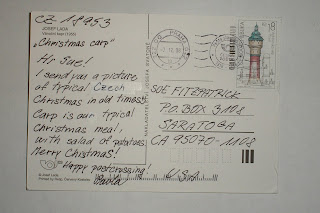 CZ-18953
JOSEF LADA
Vánoční kapr (1955)
"Christmas carp"
Hi Sue!
I send you a picture
of typical Czech
Christmas in old times.
Carp is our typical
Christmas meal,
with salad of potatoes.
Merry Christmas!
Happy postcrossing!
© Josef Lada
SUE FITZPATRICK
P.O. BOX 3108
SARATOGA
CA 95070-1108
USA